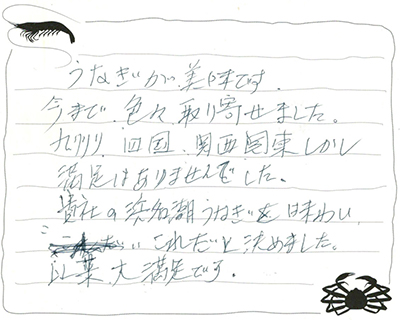 うなぎが美味です.
今まで、色々取り寄せました。
九州、四国、関西関東しかし
満足はありませんでした。
貴社の浜名湖うなぎを味わい、
これだと決めました。
以来大満足です.